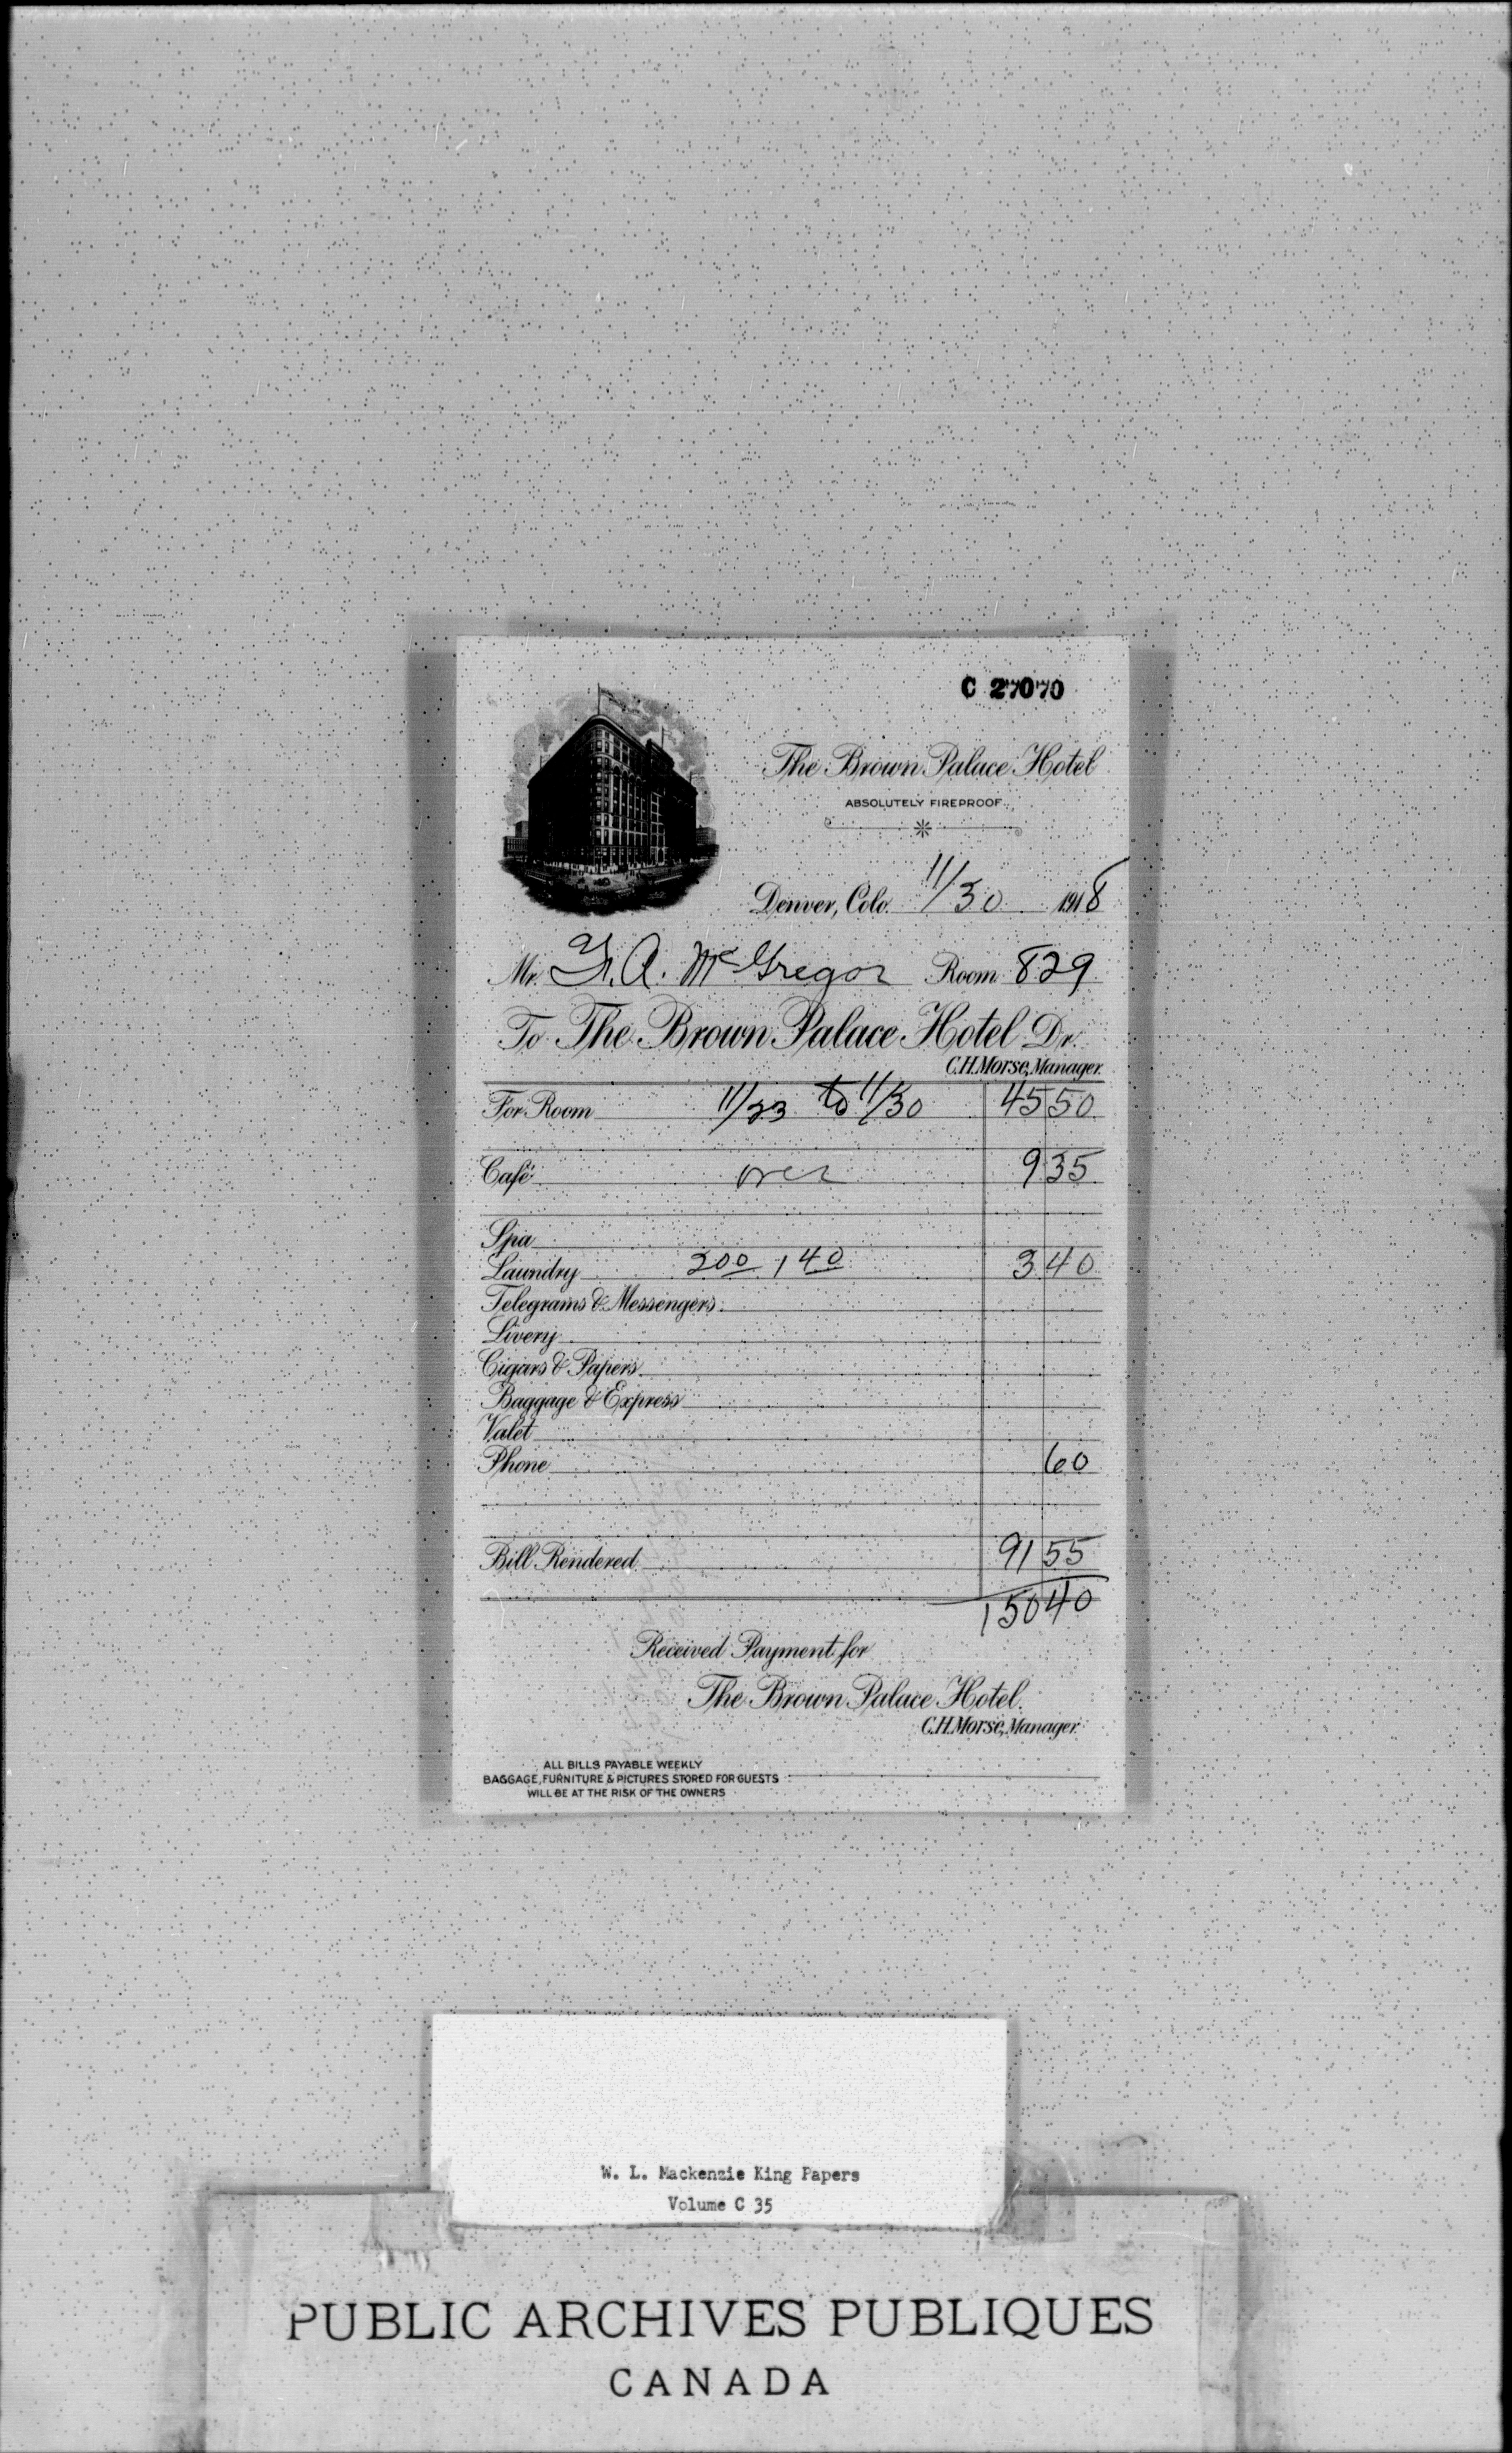 C 27070
The Brown Palace Hotel
ABSOLUTELY FIREPROOF
Denver, Colo. 11/30 1918
Mr. F. A. McGregor Room 829
To The Brown Palace Hotel Dr.
C.H. Morse, Manager.
For Room 11/23 to 11/30 45 50
Café over 9 35
Spa
Laundry 200 140 3 40
Telegrams & Messengers
Livery
Cigars & Papers
Baggage & Express
Valet
Phone 60
Bill Rendered 91 55
150 40
Received Payment for
The Brown Palace Hotel.
C.H. Morse, Manager.
ALL BILLS PAYABLE WEEKLY
BAGGAGE, FURNITURE & PICTURES STORED FOR GUESTS
WILL BE AT THE RISK OF THE OWNERS
W. L. Mackenzie King Papers
Volume C 35
PUBLIC ARCHIVES PUBLIQUES
CANADA